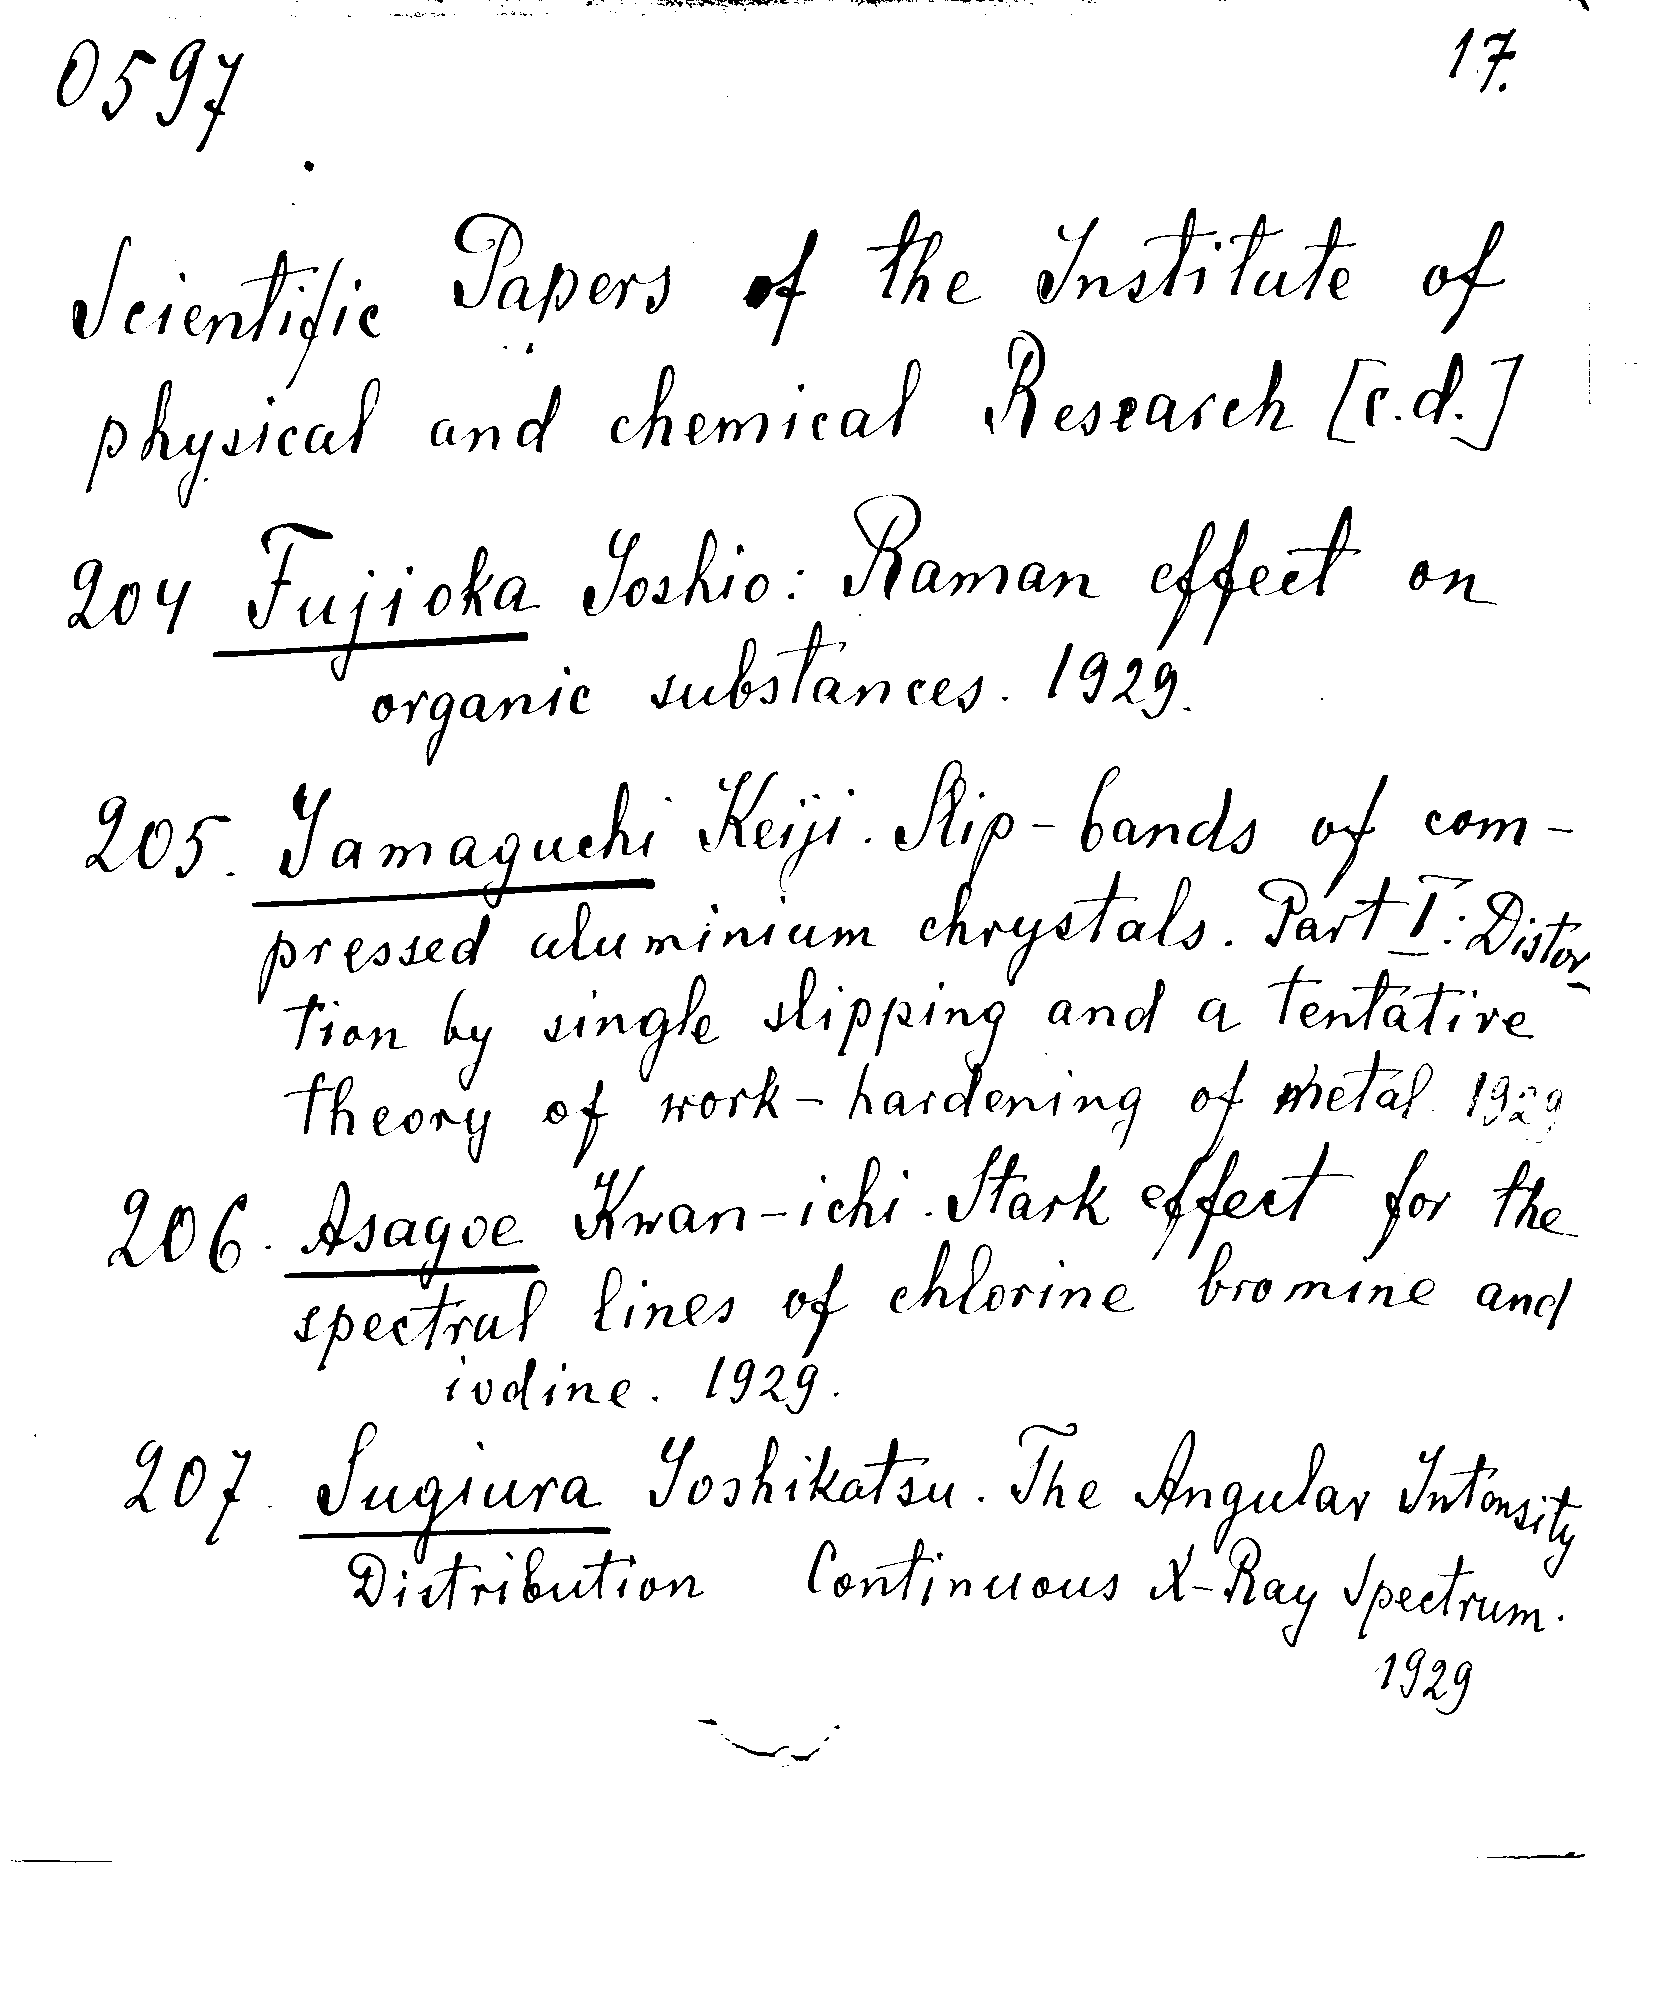 0597
17.
Scientific Papers of the Institute of
physical and chemical Research [c.d.]
204 Fujioka Yoshio: Raman effect on
organic substances. 1929.
205. Yamaguchi Keiji. Slip-bands of com-
pressed aluminium chrystals. Part I: Distor-
tion by single slipping and a tentative
theory of work-hardening of metal. 1929
206. Asagoe Kwan-ichi. Stark effect for the
spectral lines of chlorine bromine and
iodine. 1929.
207. Sugiura Yoshikatsu. The Angular Intensity
Distribution Continuous X-Ray Spectrum.
1929